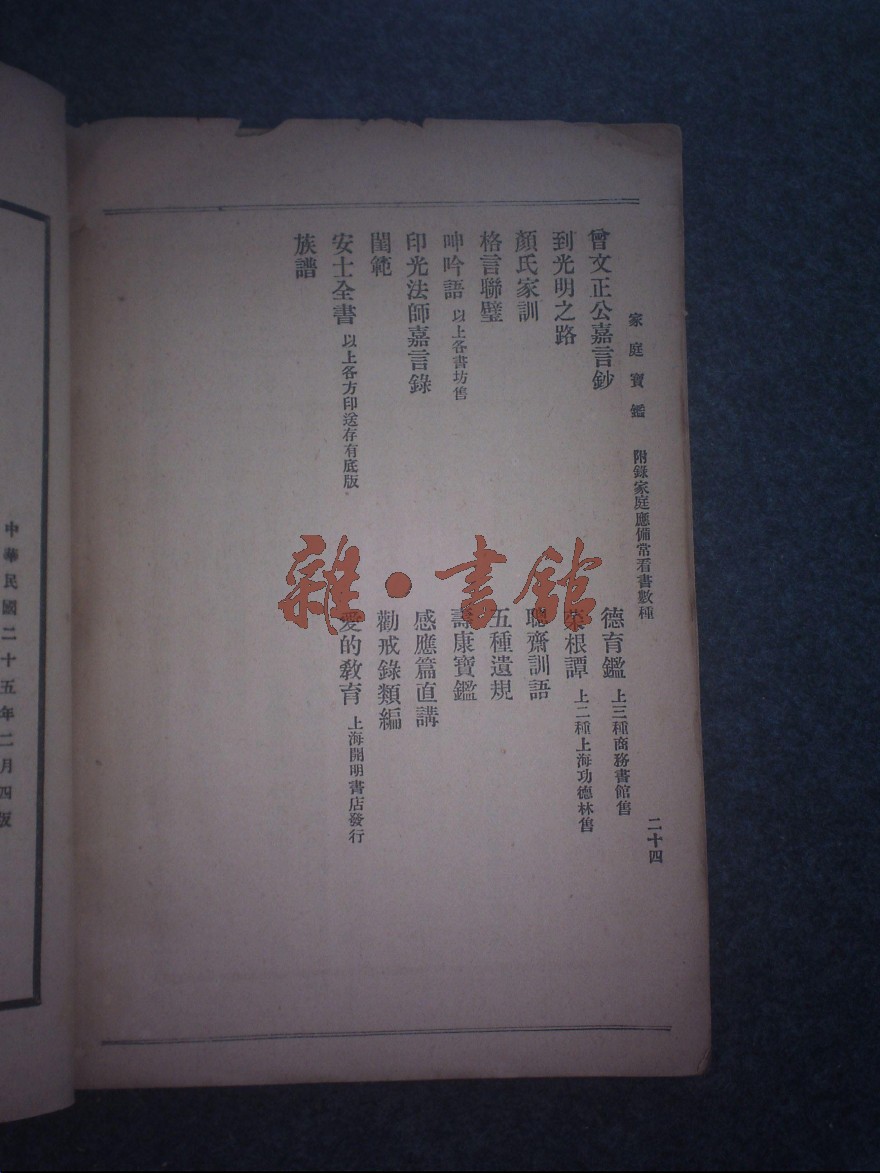 家庭寶鑑　附錄家庭應備常看書數種　二十四
曾文正公嘉言鈔　德育鑑　上三種商務書館售
到光明之路　菜根譚　上二種上海功德林售
顏氏家訓　聰齋訓語
格言聯璧　五種遺規
呻吟語　以上各書坊售　壽康寶鑑
印光法師嘉言錄　感應篇直講
閨範　勸戒錄類編
安士全書　以上各方印送存有底版　愛的教育　上海開明書店發行
族譜
中華民國二十五年二月四版
雜·書館